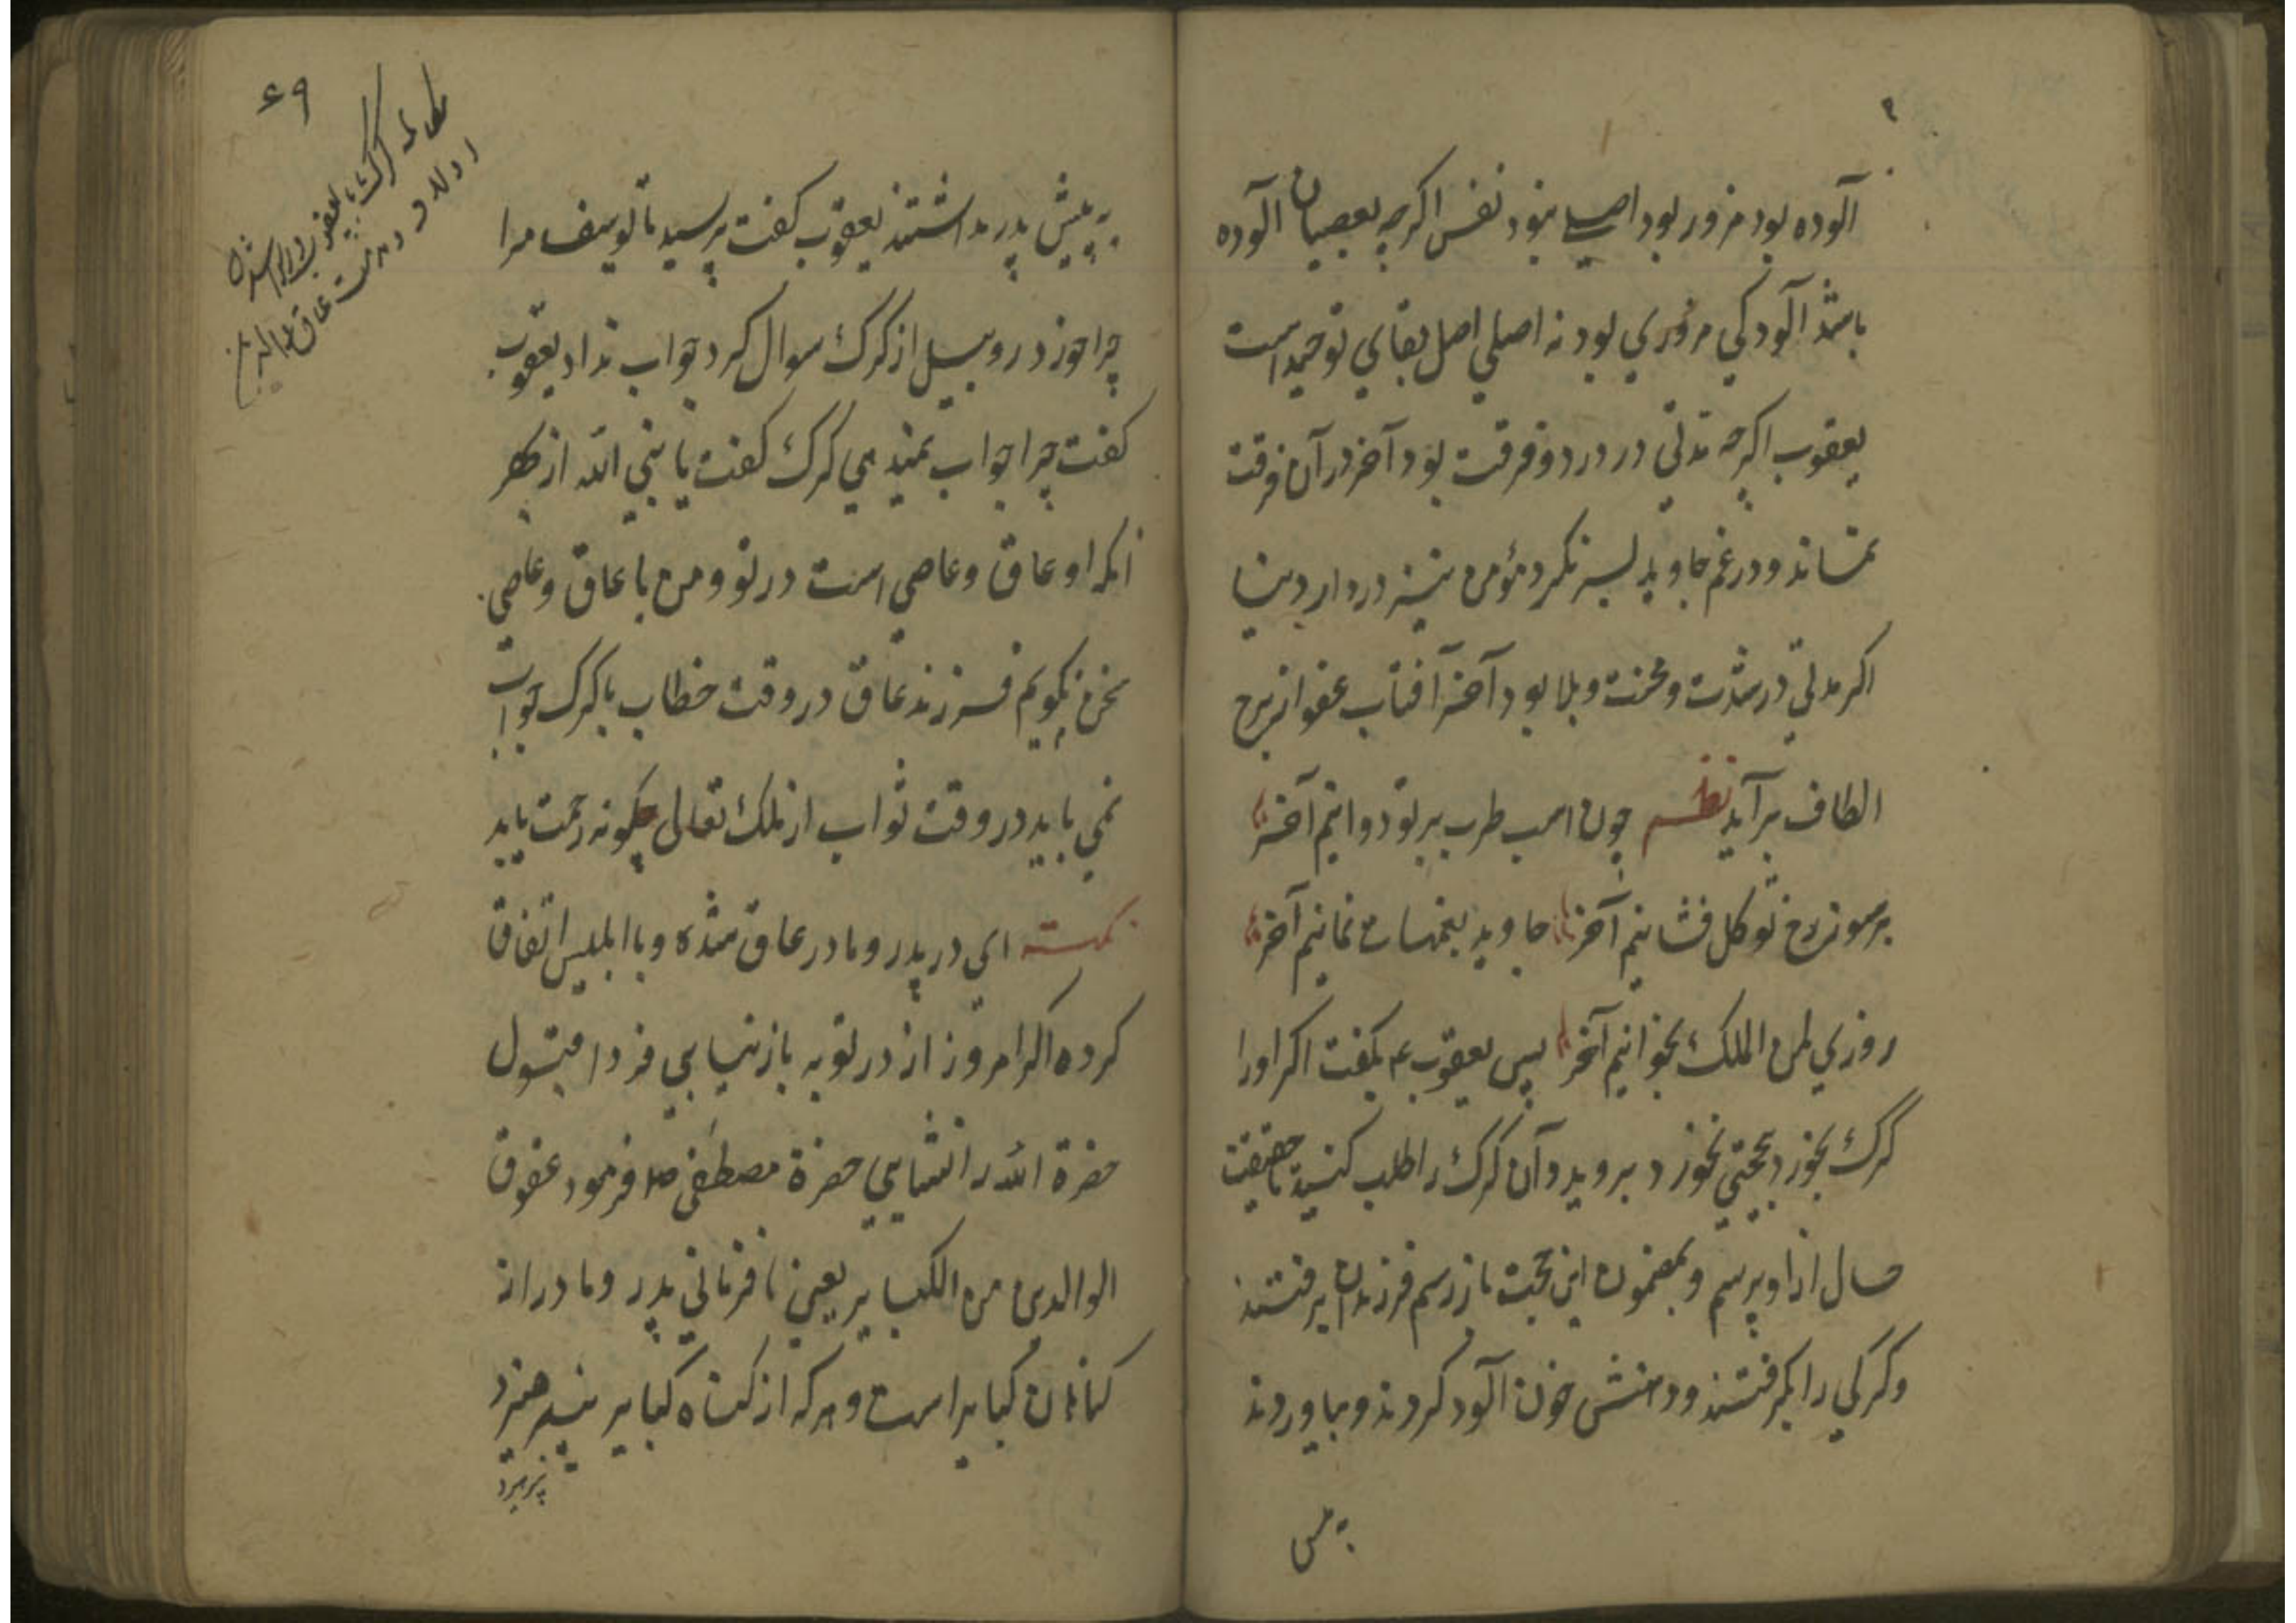 آلوده بود مزور بود اصلی نبود نفس اکرچه بعصیان آلوده
باشد آلودکی مزوری بود نه اصلی اصل بقای توحید است
یعقوب اکرچه مدتی در درد و فرقت بود آخر در آن فرقت
نماند و در غم جاوید بسر نکرد مؤمن نیز در دار دنیا
اکر مدتی در شدت و محنت و بلا بود آخر آفتاب عفو از برج
الطاف برآید نظم چون اسب طرب بر تو دوانیم آخر
بر سوزن رخ تو کل فشانیم آخر جاوید بغمهات نمانیم آخر
روزی لمن الملک بخوانیم آخر پس یعقوب ع بکفت اکر اورا
کرک بخورد بحجتی نخورد بروید و آن کرک را طلب کنید تا حقیقت
حال از او پرسم و بمضمون این حجت باز رسم فرزندان برفتند
و کرکی را بکرفتند و دهنش خون آلود کردند و بیاوردند
به پیش
۶۹
به پیش پدر بداشتند یعقوب کفت پرسید تا یوسف مرا
چرا خورد روبیل از کرک سوال کرد جواب نداد یعقوب
کفت چرا جواب نمیدهی کرک کفت یا نبی الله از بهر
آنکه او عاق و عاصی است در تو و من با عاق و عاصی
سخن نکویم فرزند عاق در وقت خطاب با کرک جواب
نمی یابد در وقت ثواب از ملک تعالی چکونه رحمت یابد
نکته ای در پدر و مادر عاق شده و با ابلیس اتفاق
کرده اکر امروز از در توبه باز نیایی فردا قبول
حضرة الله را نشایی حضرة مصطفی صلم فرمود عقوق
الوالدین من الکبایر یعنی نافرمانی پدر و مادر از
کناهان کبایر است و هرکه از کناه کبایر بپرهیزد